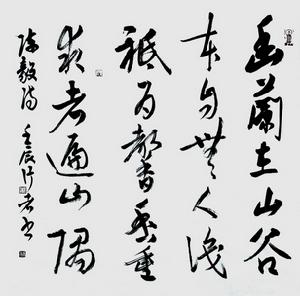 幽蘭在山谷
本自無人識
祇為馨香重
求者遍山隅
陳毅詩 壬辰